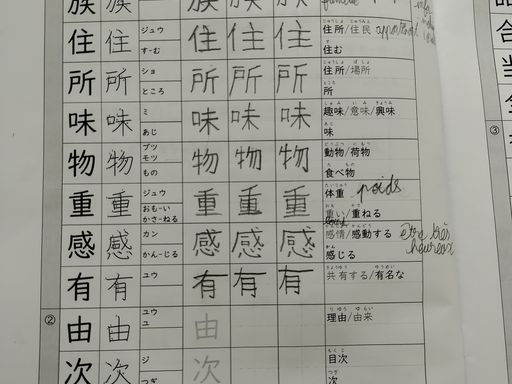 族 族 族 族 族
住 住 ジュウ 住 住 住 住所/住民
す-む 住む
所 所 ショ 所 所 所 住所/場所
ところ 所
味 味 ミ 味 味 味 趣味/意味/興味
あじ 味
物 物 ブツ 物 物 物 動物/荷物
モツ
もの 食べ物
重 重 ジュウ 重 重 重 体重 poids
おも-い 重い/重ねる
かさ-ねる
感 感 カン 感 感 感 感情/感動する être très heureux
かん-じる 感じる
有 有 ユウ 有 有 有 共有する/有名な
② 由 由 ユウ 由 理由/由来
ユ
次 次 ジ 次 目次
つぎ 次
合
当
③